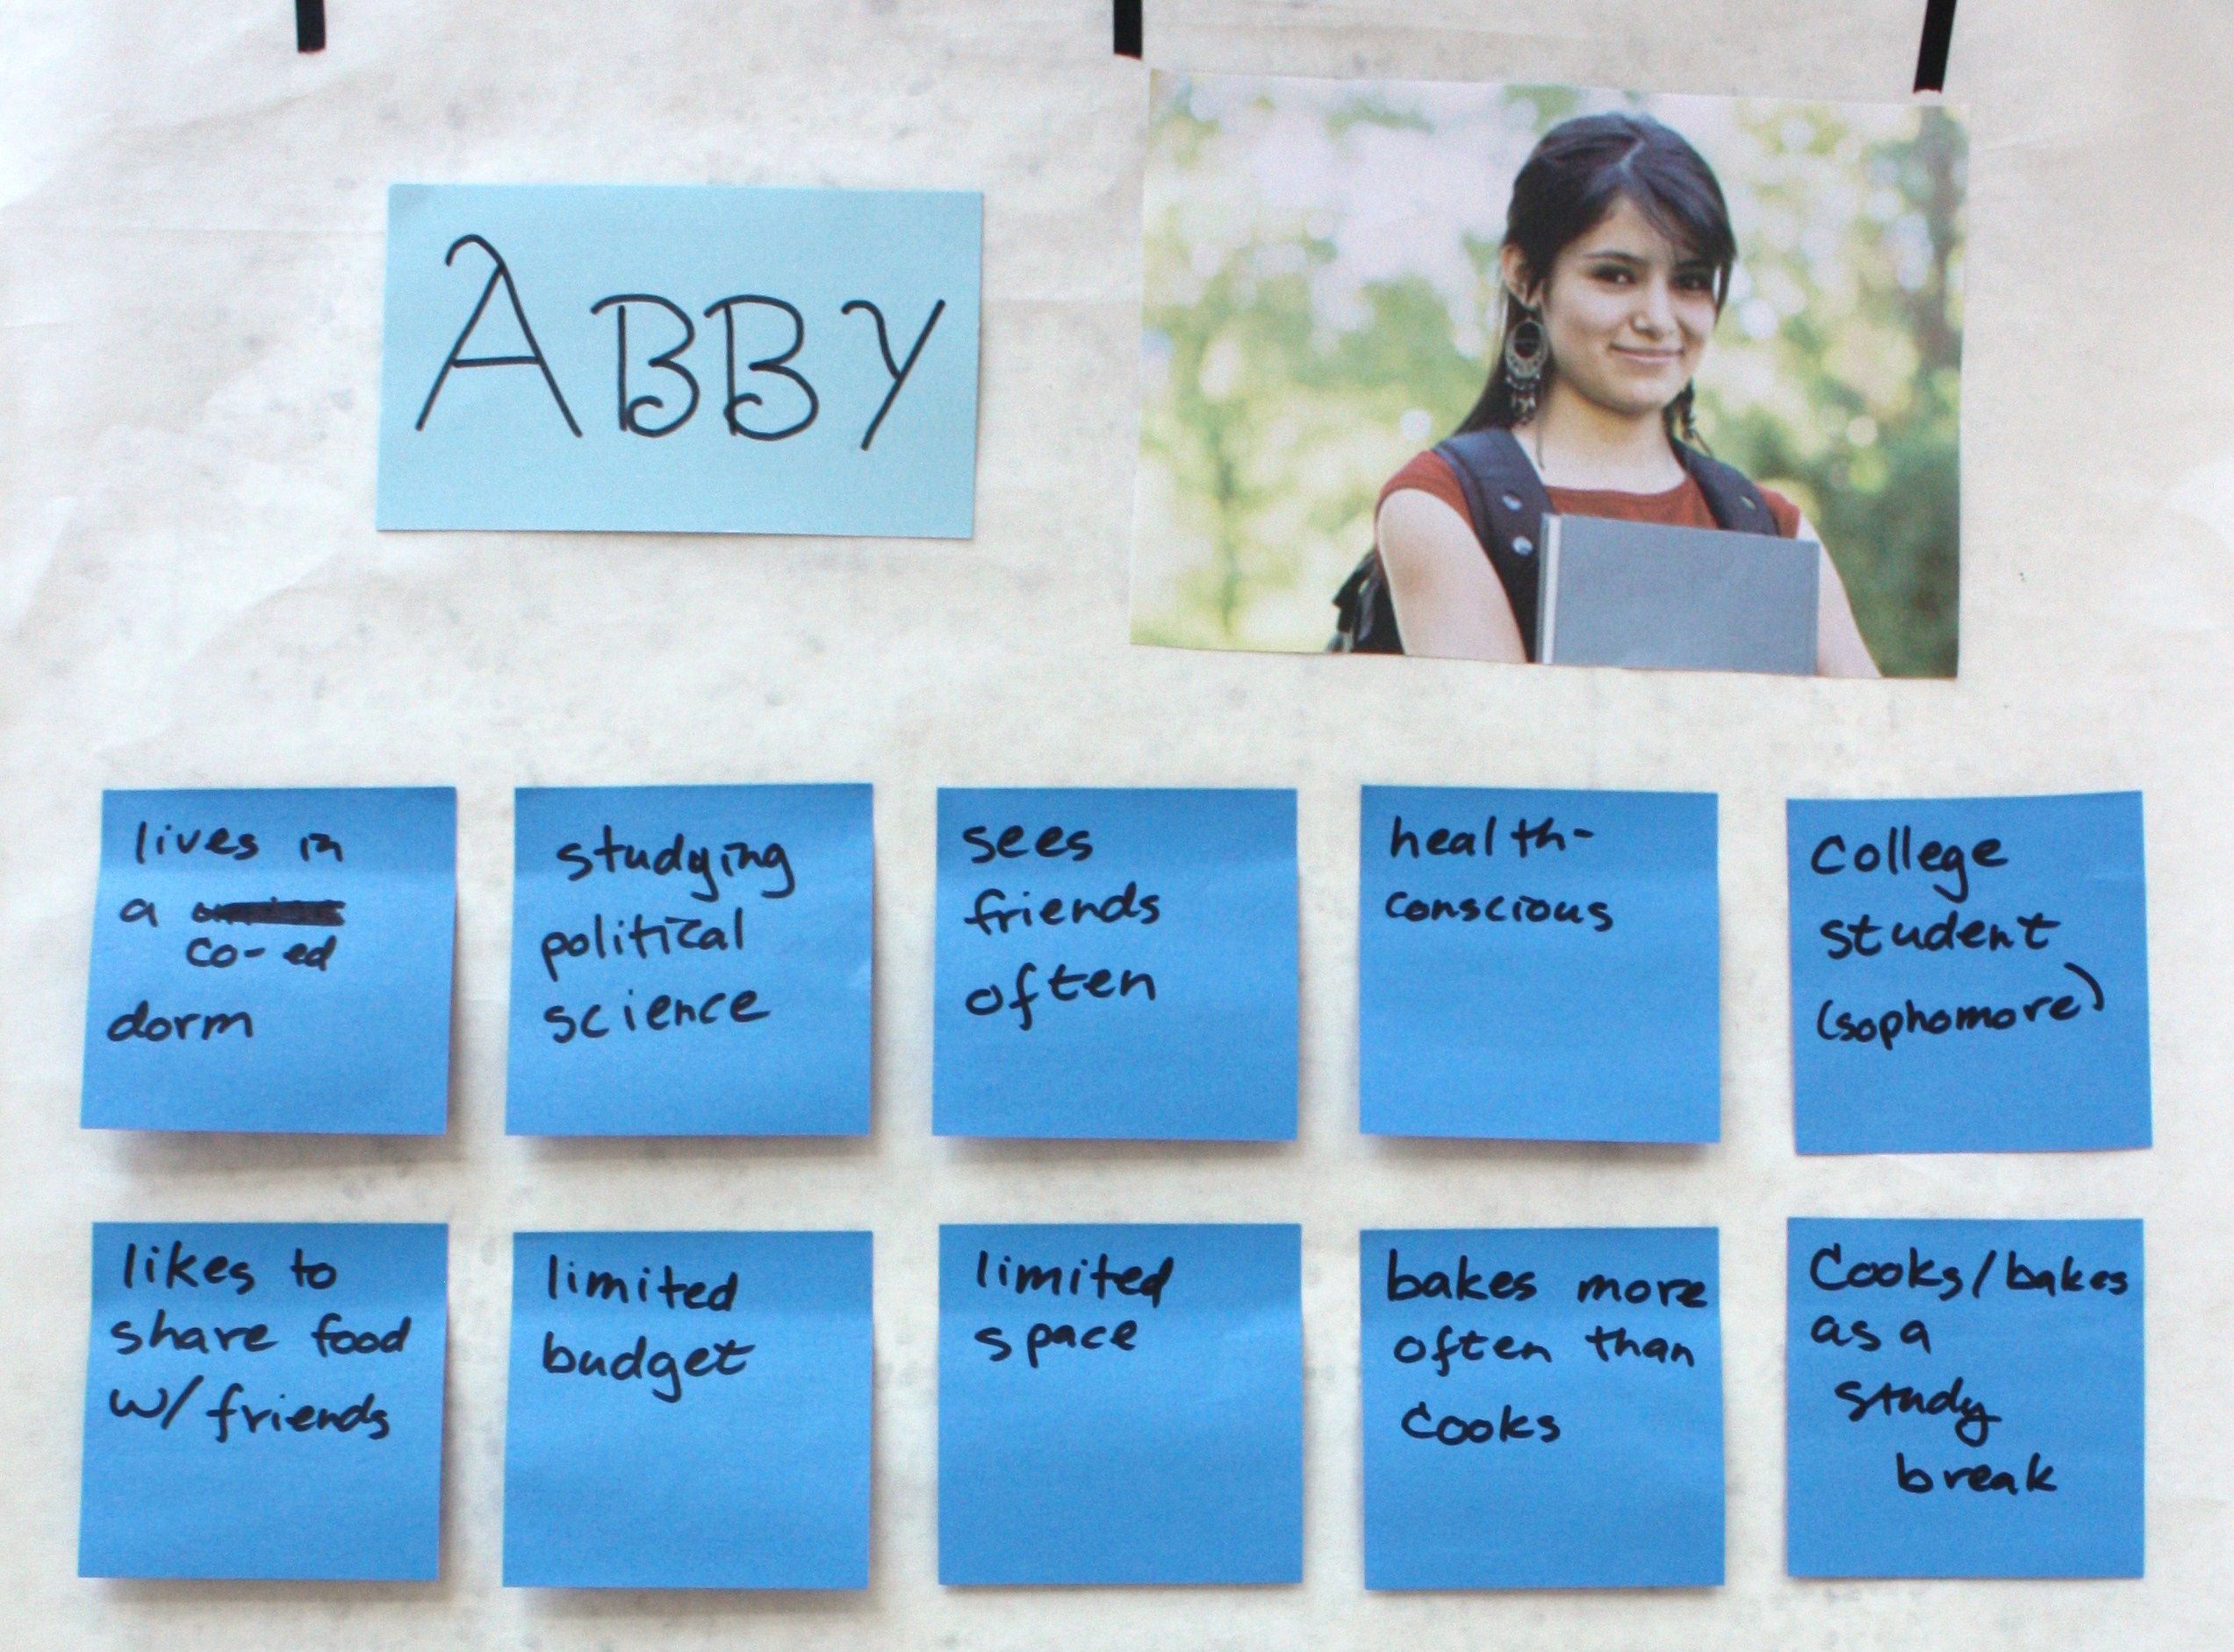 ABBY
lives in
a
co-ed
dorm
studying
political
science
sees
friends
often
health-
conscious
College
student
(sophomore)
likes to
share food
w/ friends
limited
budget
limited
space
bakes more
often than
cooks
Cooks/bakes
as a
study
break